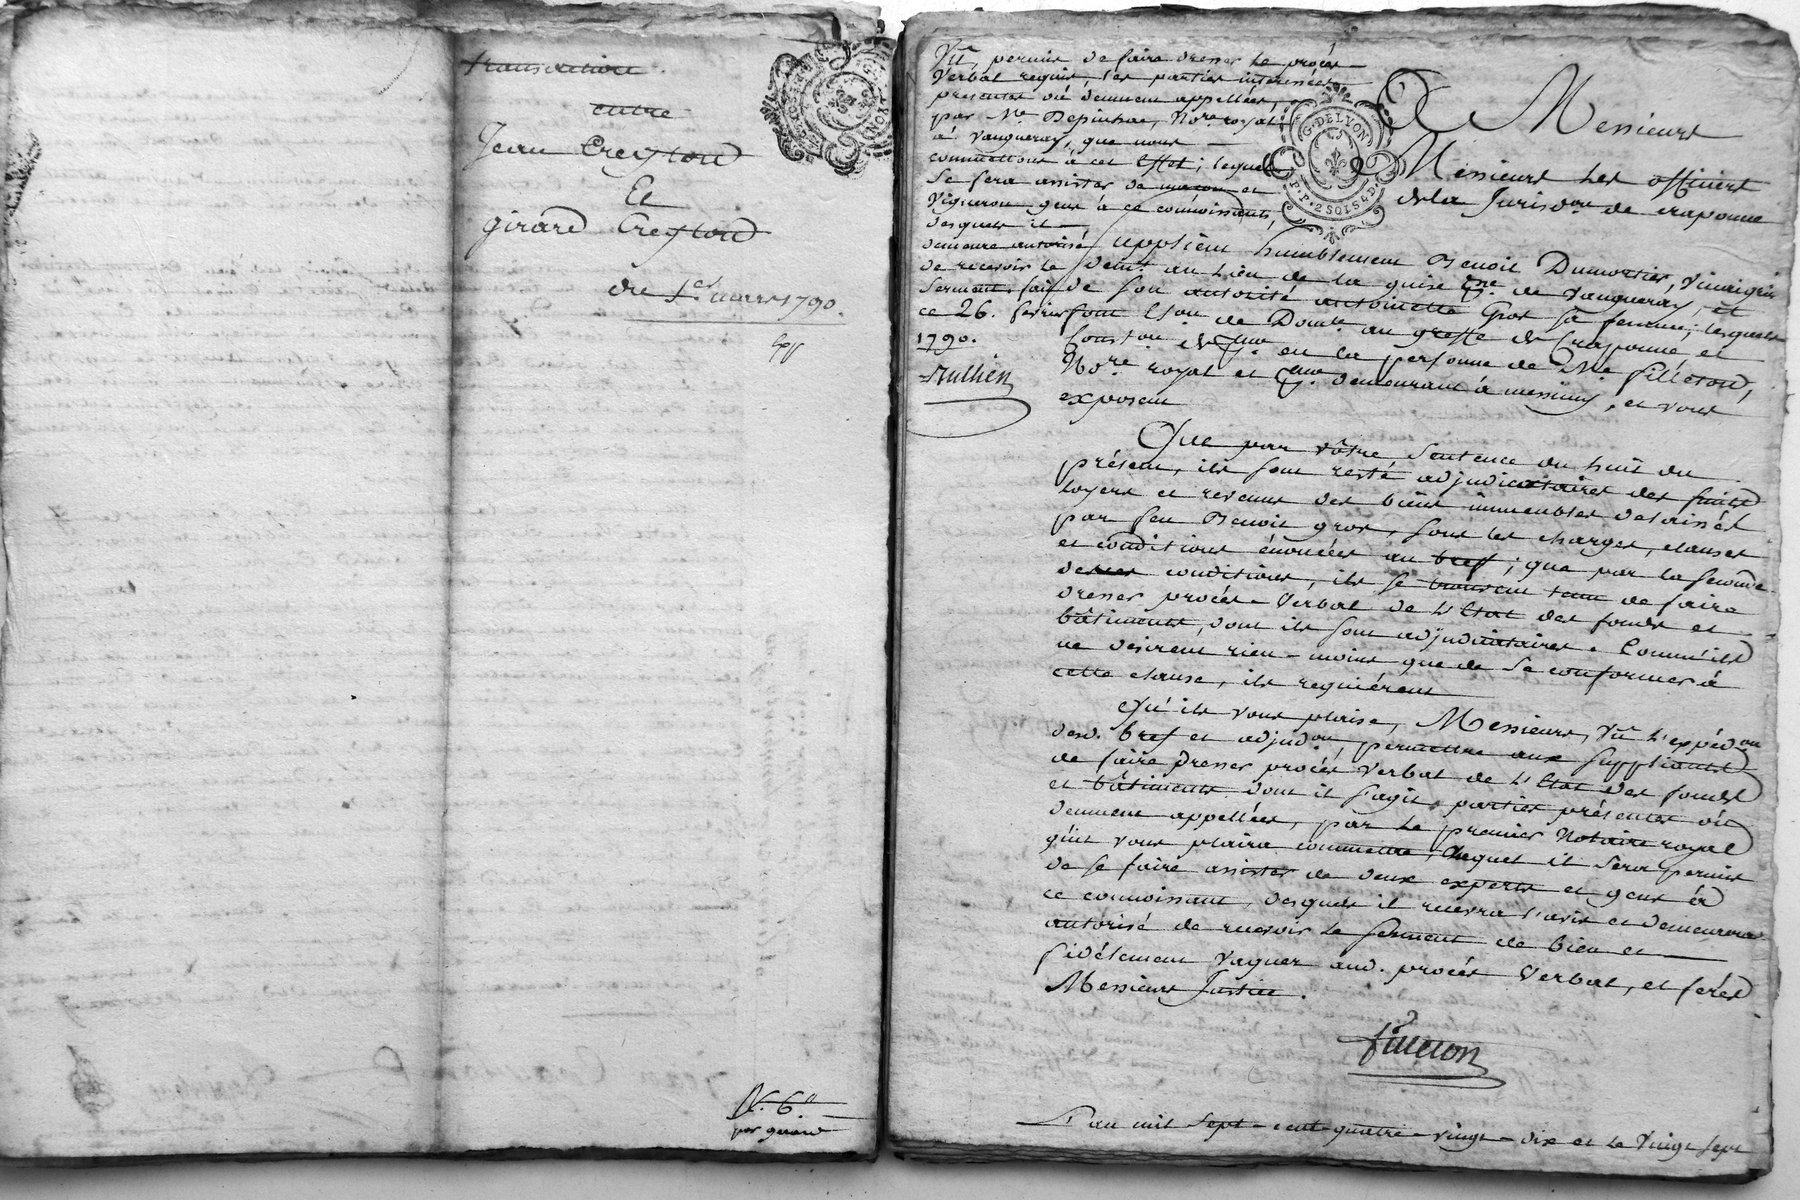 transaction
entre
Jean Creyton
Et
girard Creyton
du 1er. mars 1790.
N.º 6.#
par girard
Vû, permis de faire dresser le procès
Verbal requis, les parties interessées
presentes où dûement appellées,
par Me. Depinhac, Nore. royal
à vaugneray, que nous
commettons à cet effet; lequel
se fera assister de maçon et
Vigneron gens à ce connoissants,
desquels il
demeure autorisé
de recevoir le
serment. fait
ce 26. fevrier
1790.
Rullien
G. DE LYON
P.P. 2 SOLS 4 D.
A Messieurs
Messieurs Les officiers
de la Jurisdon. de craponne
Supplient humblement Benoît Dumortier, Vinaigrier
demt. au Lieu de la guise psse. de Vaugneray, et
de son autorité antoinette Gros sa femme; lesquels
font Eton. de Domle. au greffe de Craponne, et
Conston. de pr. en la personne de Me. fillion,
Nore. royal et pr. demeurant à messimy, et vous
exposent
Que par vôtre Sentence du huit du
présent, ils sont resté adjudicataires des fruits
loyers et revenus des biens immeubles delaissés
par feu Benoit gros, sous les charges, clauses
et conditions énoncées au bref; que par la seconde
desd. conditions, ils se trouvent tenu de faire
dresser procès-Verbal de L'Etat des fonds et
bâtiments, dont ils sont adjudicataires. Comm'ils
ne desirent rien-moins que de se conformer à
cette clause, ils requièrent
Qu'ils vous plaise, Messieurs, Vû L'expédon.
desd. bref et adjudon, permettre aux suppliants
de faire dresser procès Verbal de L'Etat des fonds
et bâtiments dont il s'agit, parties présentes où
dûement appellées, par le premier Notaire royal
qu'il vous plaira commettre, Auquel il sera permis
de se faire assister de deux experts et gens à
ce connoissant, desquels il recevra l'avis et demeurera
autorisé de recevoir le serment de bien et
fidélement vaquer aud. procès Verbal, et ferés
Messieurs Justice.
fillion
L'an mil sept-cent-quatre-vingt-dix et le Vingt sept